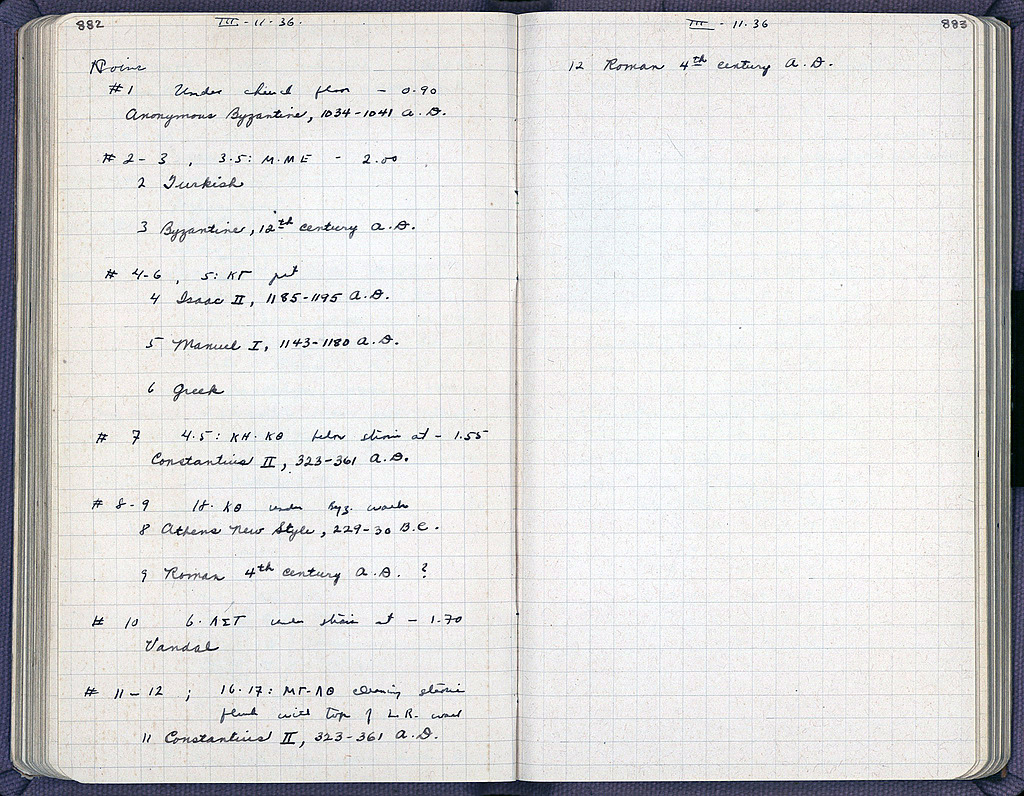 882
III - 11 - 36.
Coins
#1 Under church floor - 0.90
Anonymous Byzantine, 1034-1041 A.D.
# 2-3 , 3.5: M.ME - 2.00
2 Turkish
3 Byzantine, 12th century A.D.
# 4-6 , 5: KΓ pit
4 Isaac II, 1185-1195 A.D.
5 Manuel I, 1143-1180 A.D.
6 Greek
# 7 4.5: KH.KΘ below stosis at - 1.55
Constantius II, 323-361 A.D.
# 8-9 18. KΘ under Byz. walls
8 Athens New Style, 229-30 B.C.
9 Roman 4th century A.D. ?
# 10 6. under at - 1.70
Vandal
# 11-12 ; 16.17: MΓ-ΛΘ cleaning
flush with top of L.R. wall
11 Constantius II, 323-361 A.D.
III - 11.36
883
12 Roman 4th century A.D.